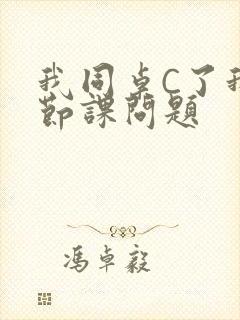 我同桌C了我
節課問題
馮卓毅